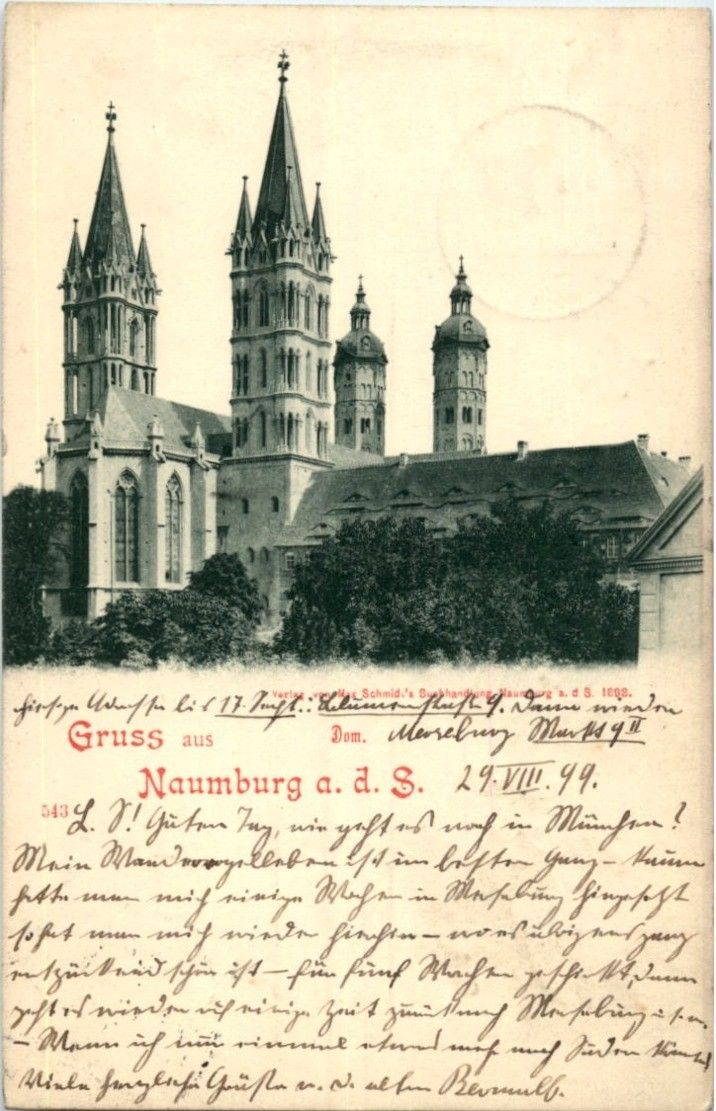 Verlag von Max Schmid's Buchhandlung, Naumburg a. d S. 1898.
hiesige Adresse bis 17. Sept.: Blumenstraße 9. Dann wieder
Gruss aus Dom. Merseburg Markt 9 II
Naumburg a. d. S. 29. VIII. 99.
543 L. S! Guten Tag, wie geht es noch in München?
Mein Wandervogelleben ist im besten Gang – kaum
hatte man mich einige Wochen in Merseburg hingesetzt
so hat man mich wieder hierhin – wo es übrigens ganz
entzückend schön ist – für fünf Wochen geschickt, dann
geht es wieder auf einige Zeit zurück nach Merseburg u.s.w.
– Wenn ich nur einmal etwas mehr nach Süden käme!
Viele herzliche Grüße v. d. alten